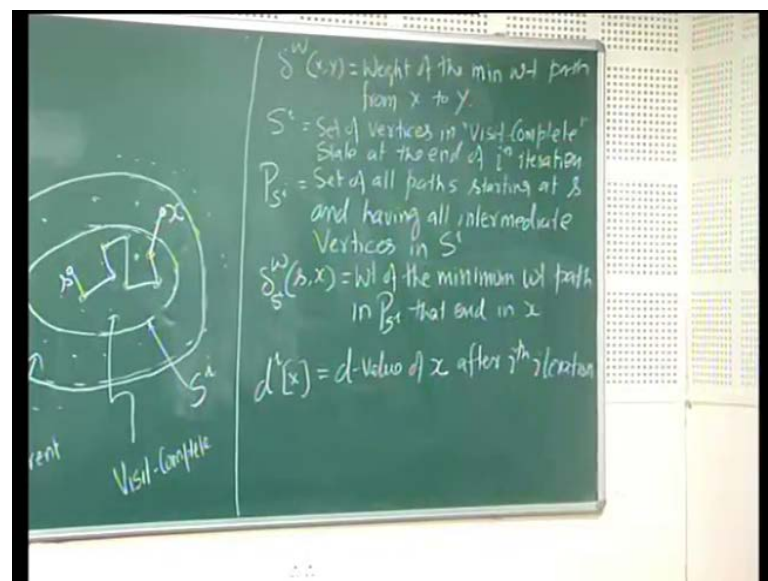 s
x
S^i
rent
Visit-Complete
δ^W(x,y) = Weight of the min wt path
from x to y.
S^i = Set of vertices in "Visit-Complete"
State at the end of i^th iteration
P_{S^i} = Set of all paths starting at s
and having all intermediate
Vertices in S^i
δ^W_{S^i}(s,x) = Wt of the minimum wt path
in P_{S^i} that end in x
d^i[x] = d-value of x after i^th iteration